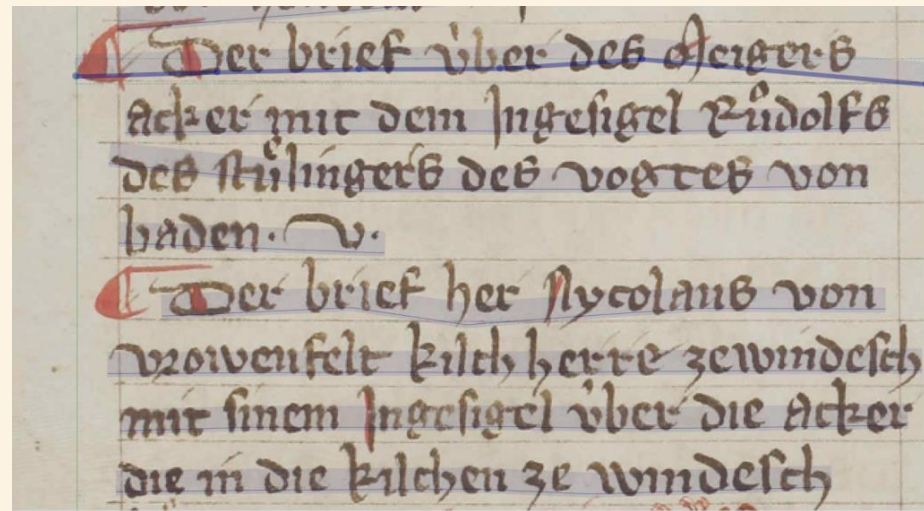 ¶ Der brief v̍ber des Meigers
acker mit dem Jngesigel Růdolfs
des Stu̍lingers des vogtes von
baden. V.
¶ Der brief her Nycolaus von
vrowenfelt kilchherre ze windesch
mit sinem Jngesigel v̍ber die acker
die in die kilchen ze windesch